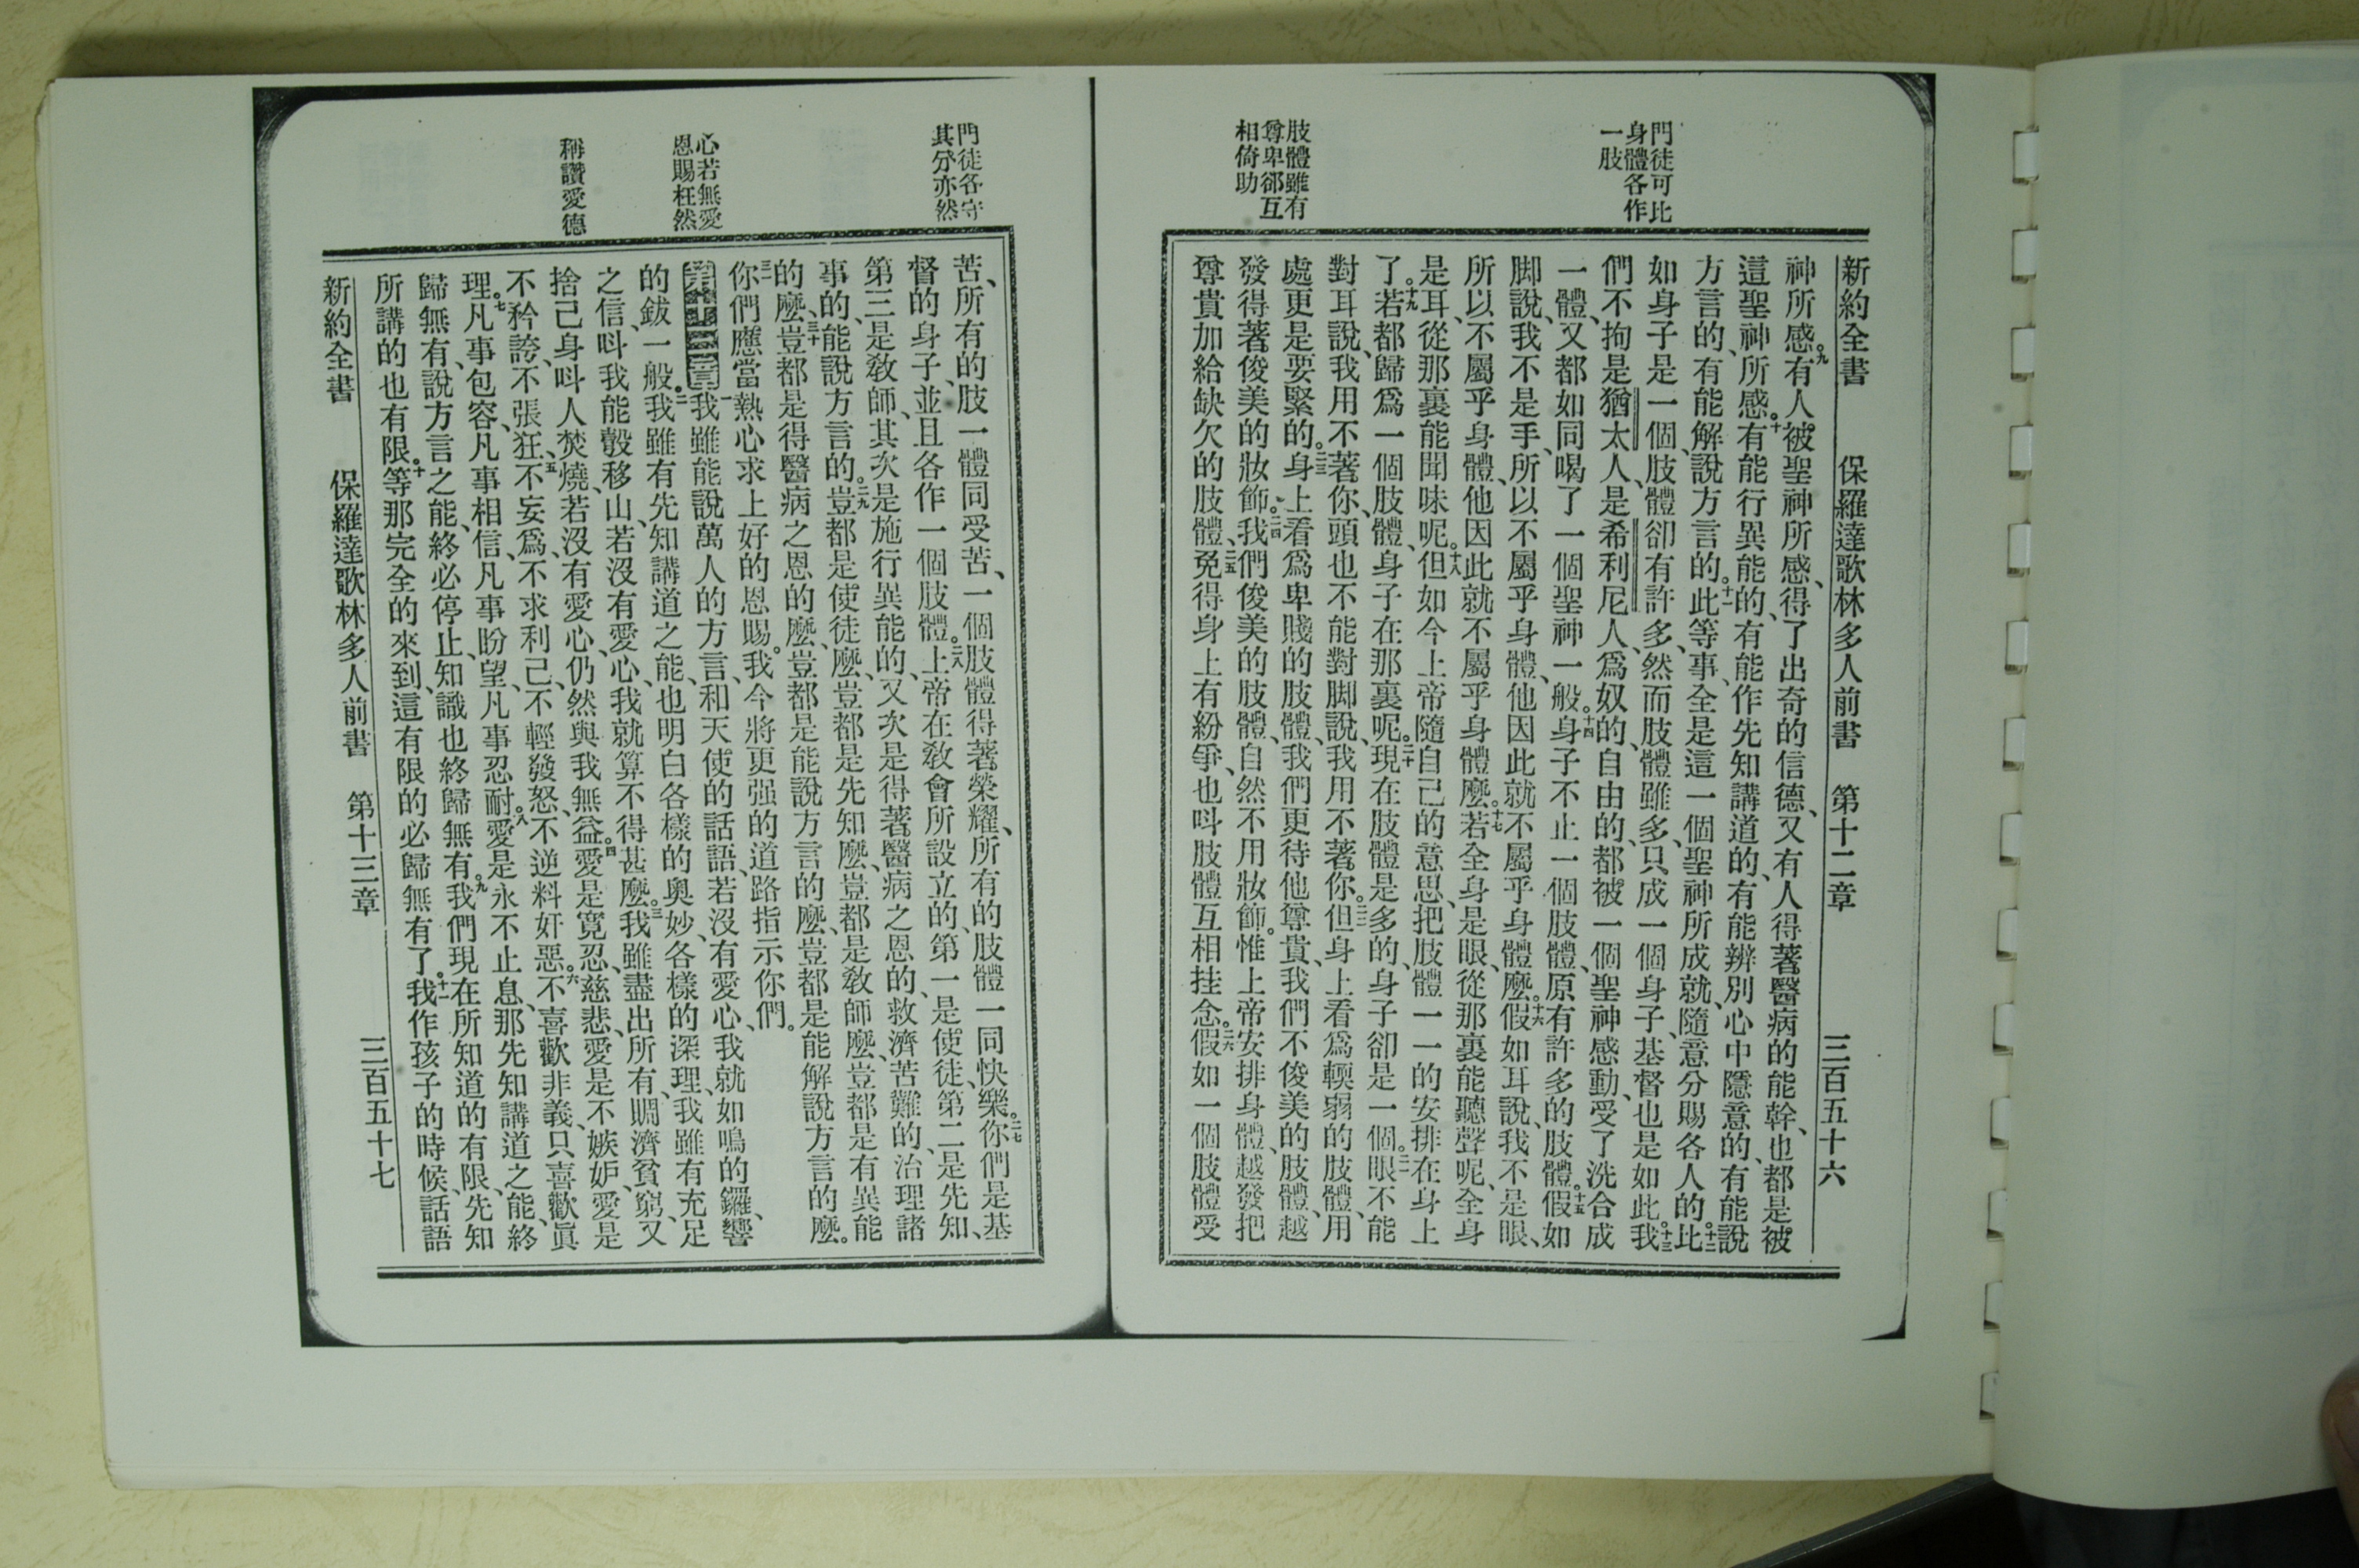 門徒可比
身體各作
一肢
肢體雖有
尊卑卻互
相倚助
新約全書　保羅達歌林多人前書　第十二章　三百五十六
神所感。九有人被聖神所感、得了出奇的信德、又有人得著醫病的能幹、也都是被
這聖神所感。十有能行異能的、有能作先知講道的、有能辨別心中隱意的、有能說
方言的、有能解說方言的。十一此等事、全是這一個聖神所成就、隨意分賜各人的。十二比
如身子是一個、肢體卻有許多、然而肢體雖多、只成一個身子、基督也是如此。十三我
們不拘是猶太人、是希利尼人、爲奴的、自由的、都被一個聖神感動、受了洗合成
一體、又都如同喝了一個聖神一般。十四身子不止一個肢體、原有許多的肢體。十五假如
脚說、我不是手、所以不屬乎身體、他因此就不屬乎身體麼。十六假如耳說、我不是眼、
所以不屬乎身體、他因此就不屬乎身體麼。十七若全身是眼、從那裏能聽聲呢、全身
是耳、從那裏能聞味呢。十八但如今上帝隨自己的意思、把肢體一一的安排在身上
了。十九若都歸爲一個肢體、身子在那裏呢。二十現在肢體是多的、身子卻是一個。二一眼不能
對耳說、我用不著你、頭也不能對脚說、我用不著你。二二但身上看爲輭弱的肢體、用
處更是要緊的。二三身上看爲卑賤的肢體、我們更待他尊貴、我們不俊美的肢體、越
發得著俊美的妝飾。二四我們俊美的肢體、自然不用妝飾。惟上帝安排身體、越發把
尊貴加給缺欠的肢體、二五免得身上有紛爭、也呌肢體互相挂念。二六假如一個肢體受
門徒各守
其分亦然
心若無愛
恩賜枉然
稱讚愛德
苦、所有的肢一體同受苦、一個肢體得著榮耀、所有的肢體一同快樂。二七你們是基
督的身子、並且各作一個肢體。二八上帝在敎會所設立的、第一是使徒、第二是先知、
第三是敎師、其次是施行異能的、又次是得著醫病之恩的、救濟苦難的、治理諸
事的、能說方言的。二九豈都是使徒麼、豈都是先知麼、豈都是敎師麼、豈都是有異能
的麼、三十豈都是得醫病之恩的麼、豈都是能說方言的麼、豈都是能解說方言的麼。
三一你們應當熱心求上好的恩賜。我今將更强的道路指示你們。
第十三章一我雖能說萬人的方言、和天使的話語、若沒有愛心、我就如鳴的鑼、響
的鈸一般。二我雖有先知講道之能、也明白各樣的奥妙、各樣的深理、我雖有充足
之信、呌我能彀移山、若沒有愛心、我就算不得甚麼。三我雖盡出所有、賙濟貧窮、又
捨己身呌人焚燒、若沒有愛心、仍然與我無益。四愛是寬忍、慈悲、愛是不嫉妒、愛是
不矜誇、不張狂、五不妄爲、不求利己、不輕發怒、不逆料奸惡。六不喜歡非義、只喜歡眞
理。七凡事包容、凡事相信、凡事盼望、凡事忍耐。八愛是永不止息、那先知講道之能、終
歸無有、說方言之能、終必停止、知識也終歸無有。九我們現在所知道的有限、先知
所講的也有限。十等那完全的來到、這有限的必歸無有了。十一我作孩子的時候、話語
新約全書　保羅達歌林多人前書　第十三章　三百五十七